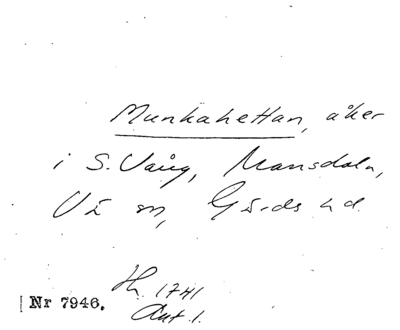 Munkahettan, åker
i S. Vång, Mansdala,
Vä sn, Gärds hd.
Hh. 1741
Akt 1.
Nr 7946.